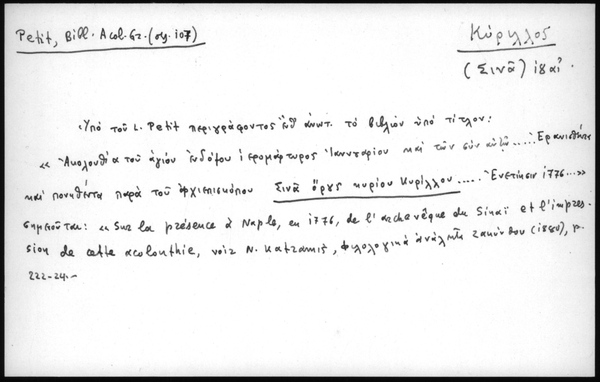 Petit, Bibl. Acol. Gr. (σγ. 107)
Κύριλλος
(Σινᾶ) 18 αἰ.
Ὑπό τοῦ L. Petit περιγράφοντος ἔνθ ἀνωτ. τό βιβλίον ὑπό τίτλον:
« Ἀκολουθία τοῦ ἁγίου ἐνδόξου ἱερομάρτυρος Ἰαννουαρίου καί τῶν σύν αὐτῷ .... Ἐρανισθεῖσα
καί πονηθεῖσα παρά τοῦ ἀρχιεπισκόπου Σινᾶ ὄρους κυρίου Κυρίλλου ..... Ἐνετίησιν 1776...»
σημειοῦται: « Sur la présence à Naple, en 1776, de l'archevêque du Sinaï et l'impres-
sion de cette acolouthie, voir N. Katramis, φιλολογικά ἀνάλεκτα Ζακύνθου (1880), p.
222-24.-